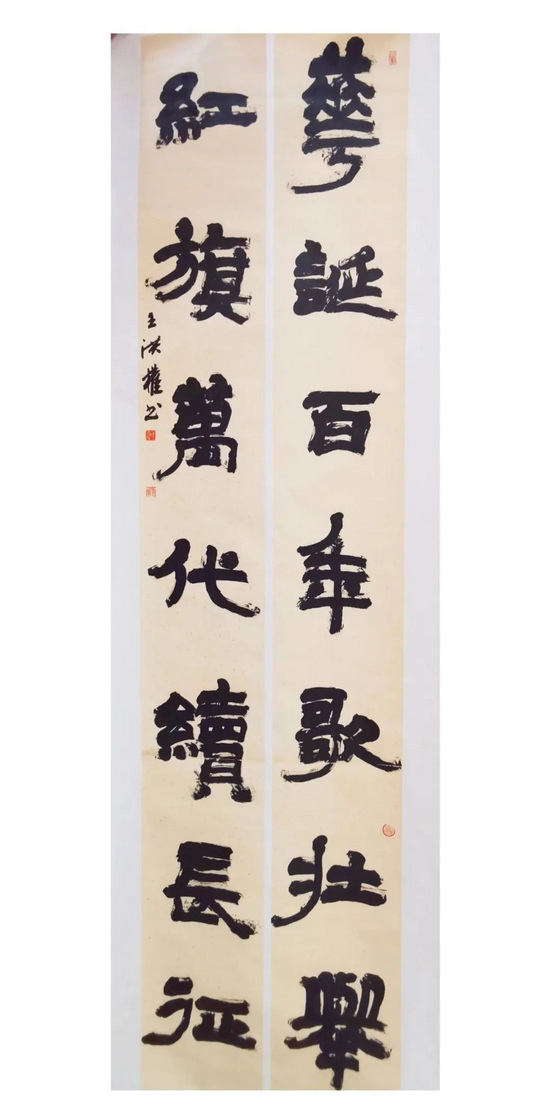 華誕百年歌壯舉
紅旗萬代續長征
王洪權书